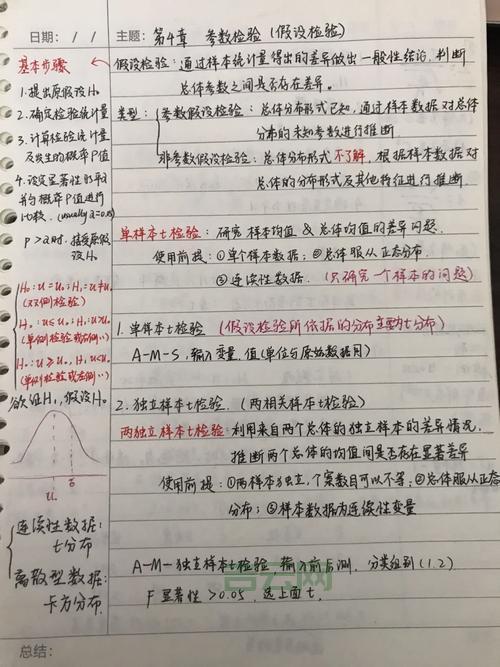 日期： / /
主题：第4章 参数检验（假设检验）
基本步骤
1.提出原假设H₀
2.确定检验统计量
3.计算检验统计量
及发生的概率P值
4.设定显著性水平α
并与概率P值进行
比较.(usually α=0.05)
p>α时.接受原假
设H₀
H₀:u=u₀;H₁:u≠u₀
(双侧检验)
H₀:u≤u₀;H₁:u>u₀
(单侧检验或右侧‥)
H₀:u≥u₀,H₁:u<u₀
(单侧检验或左侧‥)
欲证H₁,假设H₀
u₀
连续性数据:
t分布
离散型数据:
卡方分布
假设检验：通过样本统计量得出的差异做出一般性结论,判断
总体参数之间是否存在差异。
类型：参数假设检验：总体分布形式已知,通过样本数据对总体
分布的未知参数进行推断
非参数假设检验：总体分布形式不了解,根据样本数据对
总体的分布形式及其他特征进行推断.
单样本t检验：研究样本均值&总体均值的差异问题.
使用前提：①单个样本数据；②总体服从正态分布.
③连续性数据.(只研究一个样本的问题)
1.单样本t检验(假设检验所依据的分布主要为t分布)
A-M-S,输入变量,值(单位与原始数据同)
2.独立样本t检验.(两相关样本t检验)
两独立样本t检验：利用来自两个总体的独立样本的差异情况,
推断两个总体的均值间是否存在显著差异
使用前提：①两样本独立,个案数目可以不等；②总体服从正态
分布；③样本数据为连续性变量
A-M-独立样本t检验,输入前后测,分类组别(1.2)
F显著性>0.05,选上面t.
总结：